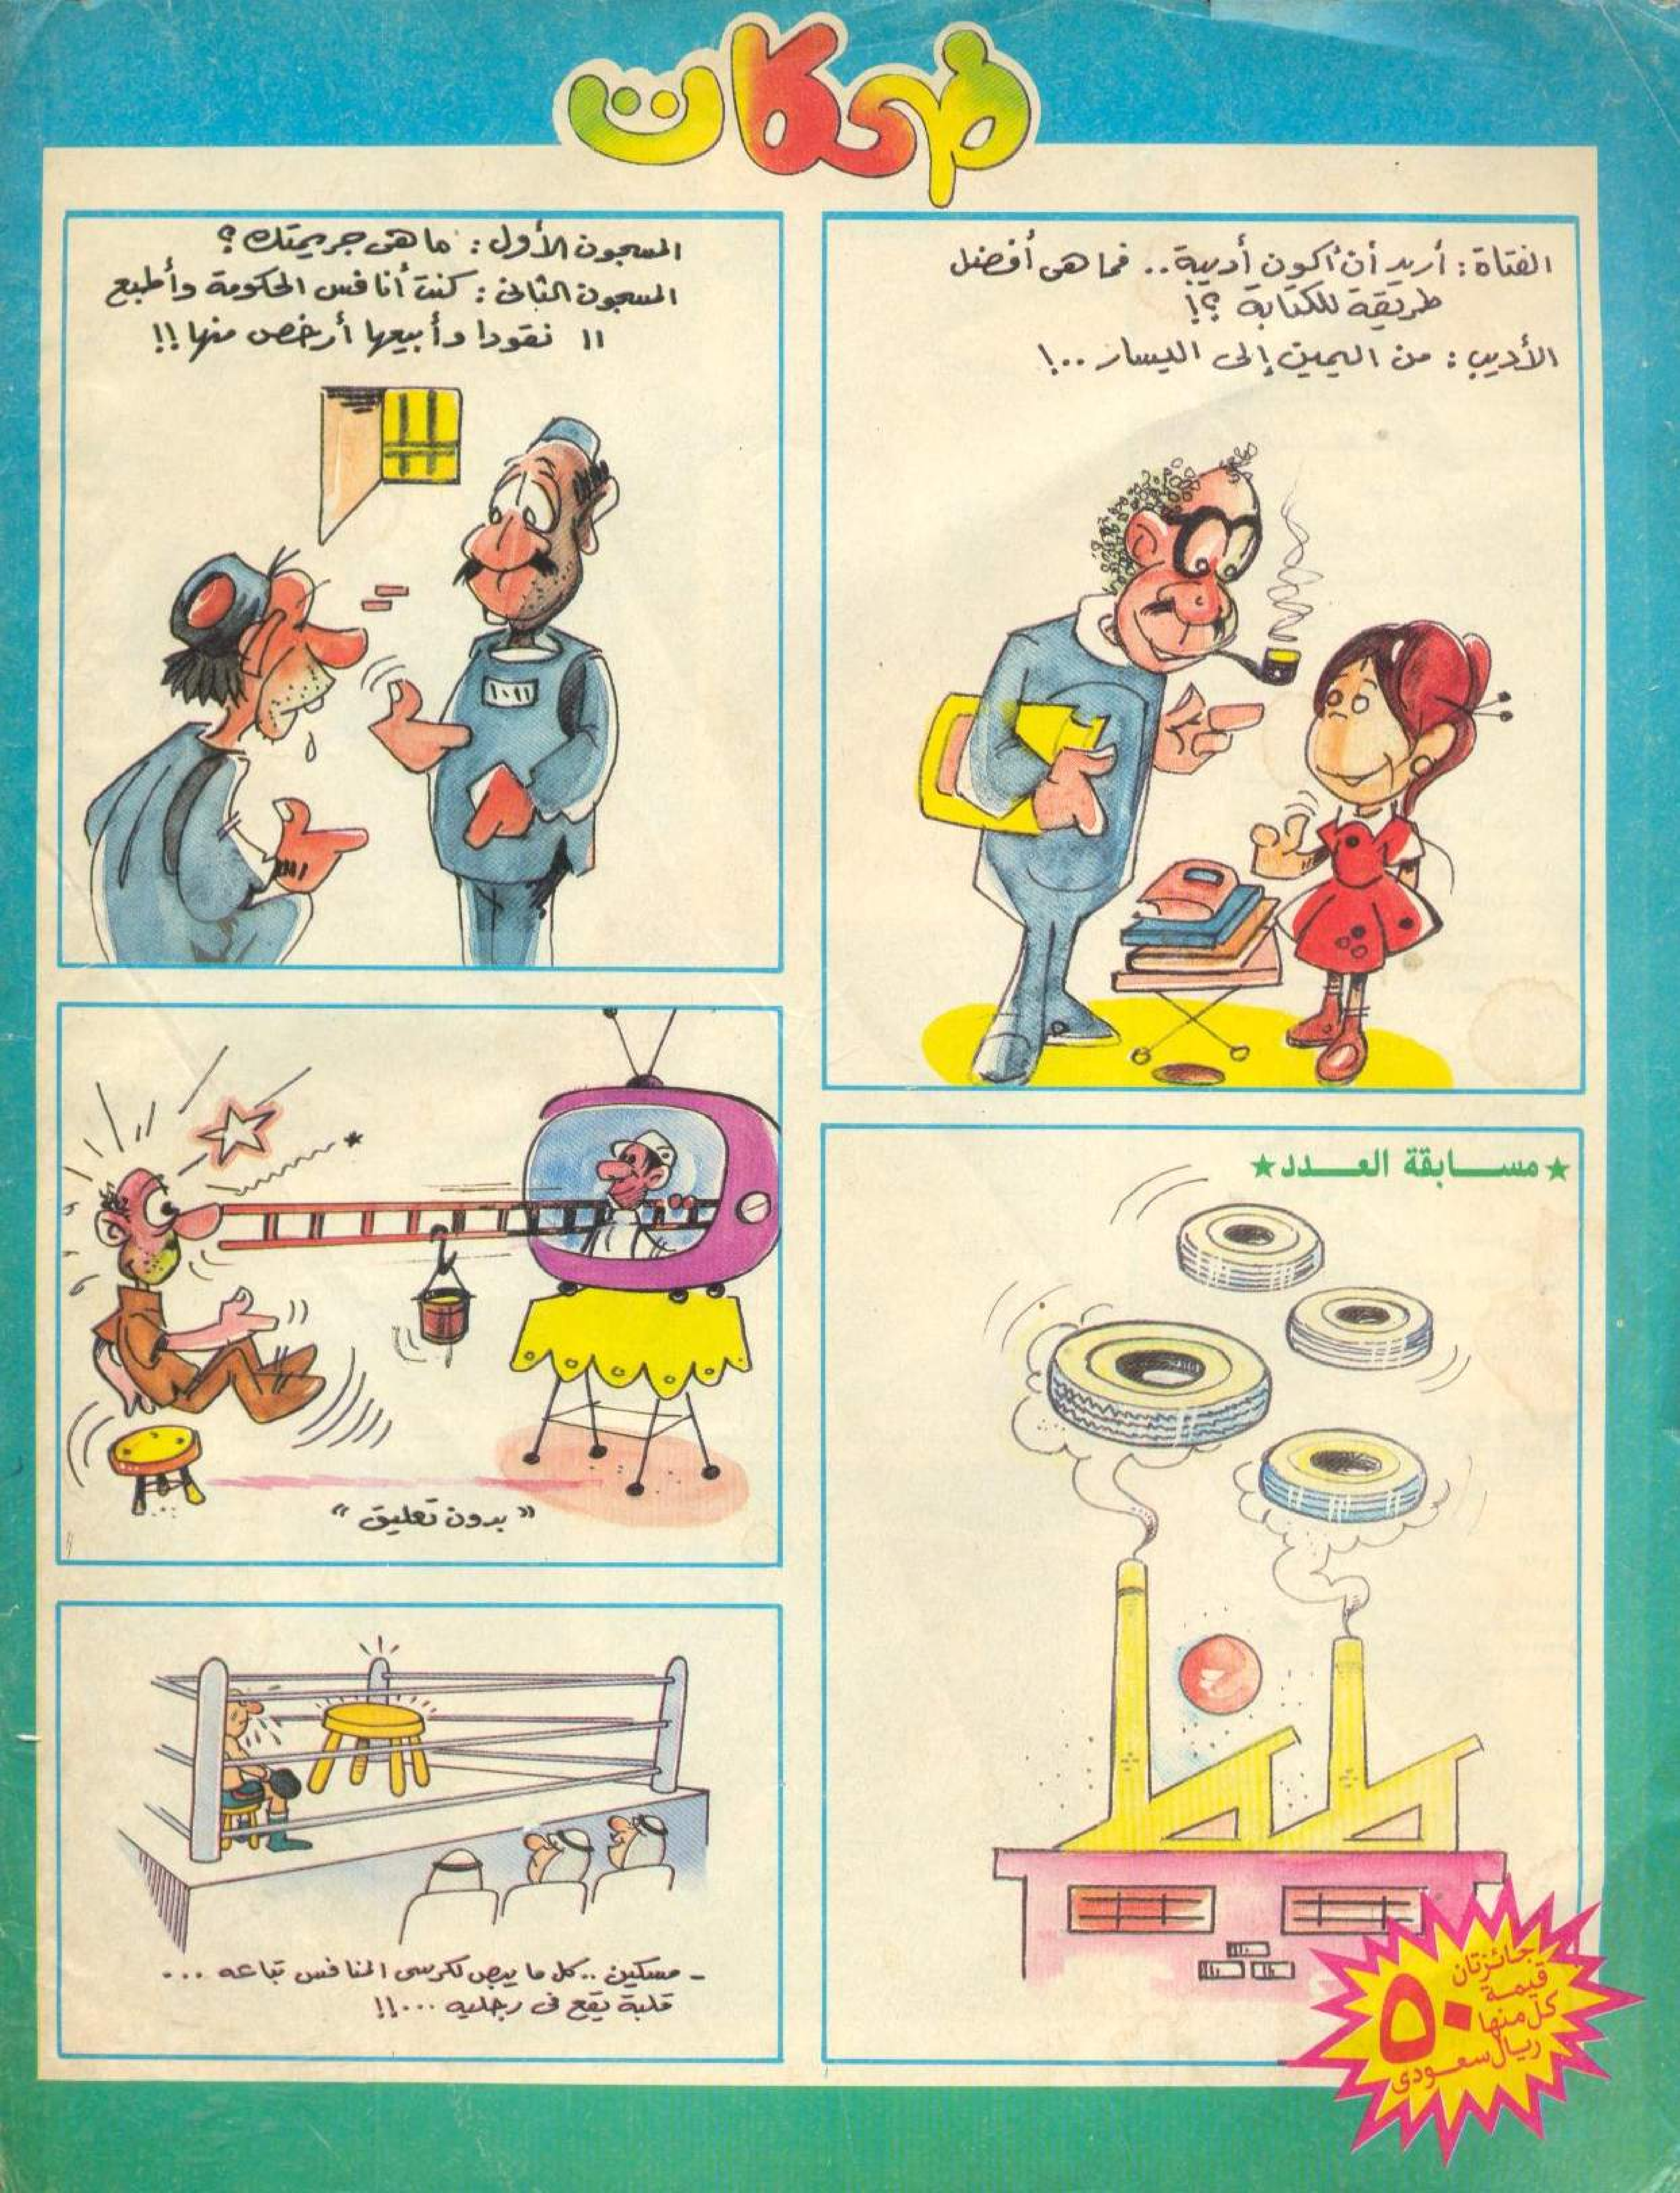 ضحكات
الفتاة : أريد أن أكون أديبة .. فما هى أفضل
طريقة للكتابة ؟!
الأديب : من اليمين إلى اليسار ..!
المسجون الأول : ما هى جريمتك ؟
المسجون الثانى : كنت أنافس الحكومة وأطبع
١١ نقودا وأبيعها أرخص منها !!
١٠٩١
★ مســـابقة العـــدد ★
طط
جائزتان
قيمـة
كل منها
٥٠
ريال سعـودى
" بدون تعليق "
- مسكين .. كل ما يبص لكرسى المنافس تباعه ...
قلبة يقع فى رجليه ...!!